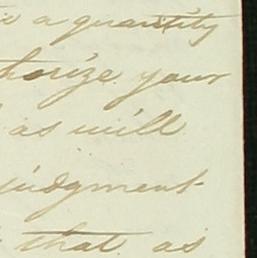 a quantity
thorize your
as will
judgment
that as